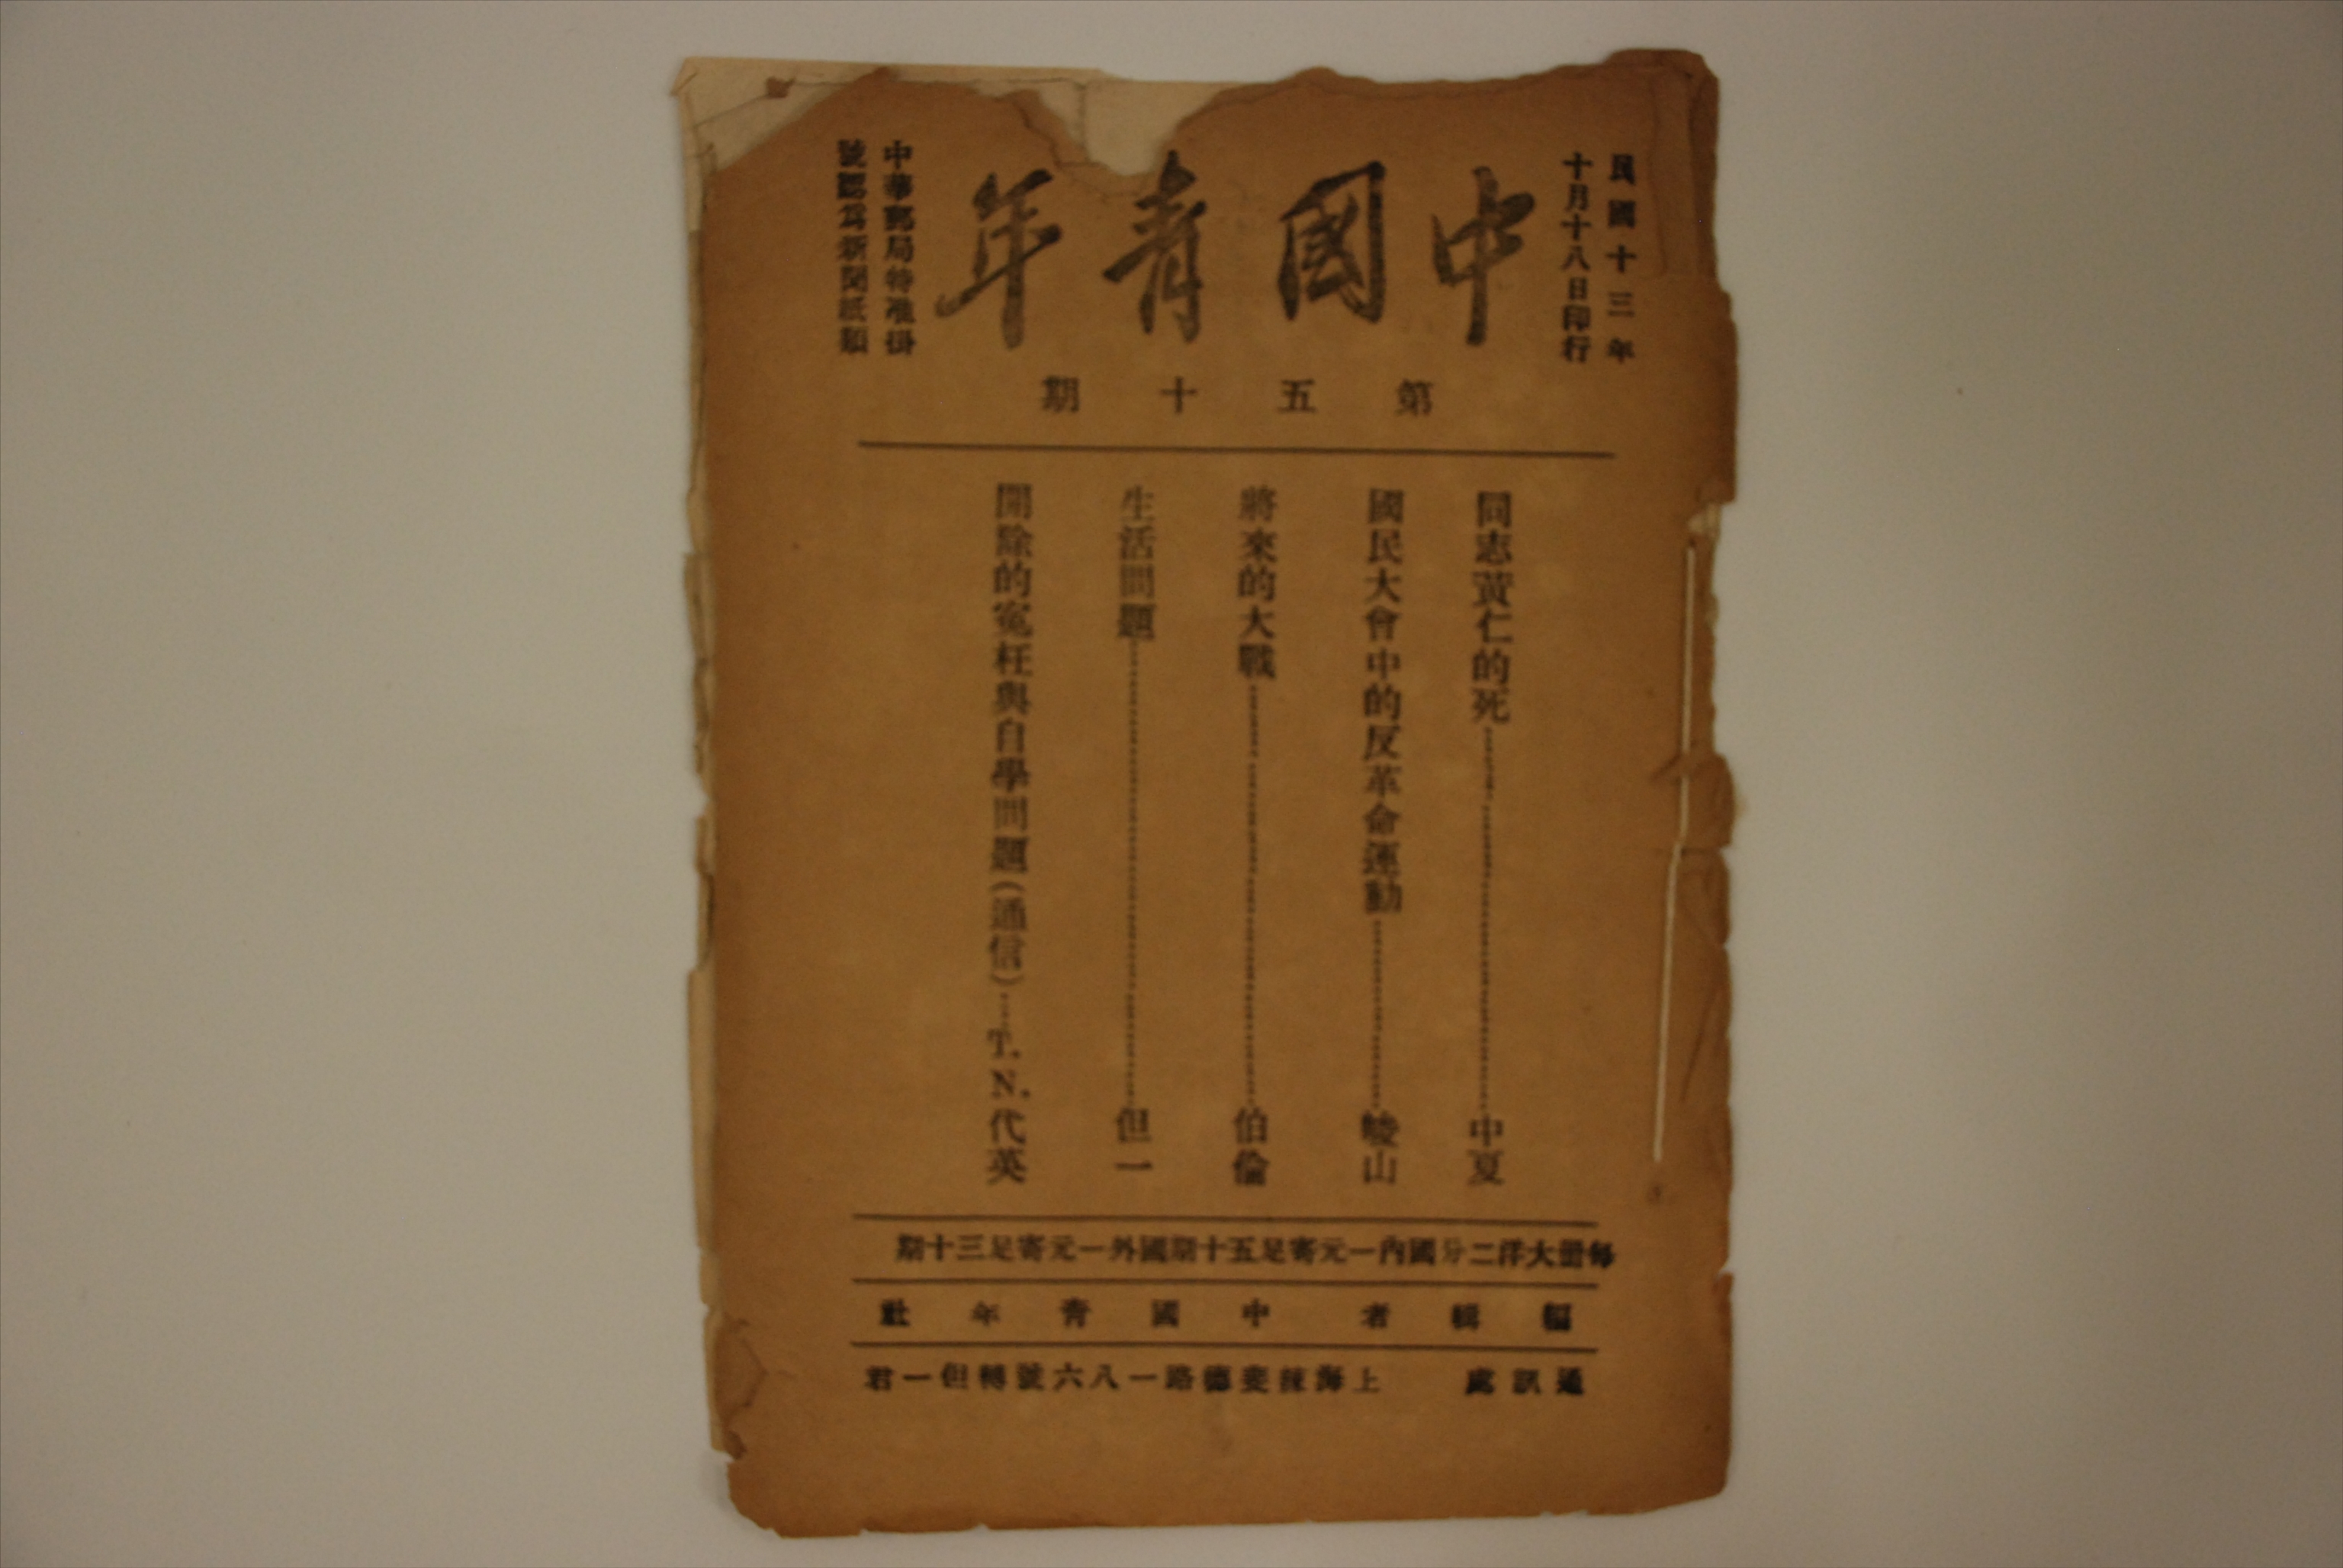 民國十三年
十月十八日印行
中國青年
中華郵局特准掛
號認爲新聞紙類
第五十期
同志黃仁的死………中夏
國民大會中的反革命運動………㚇山
將來的大戰………伯倫
生活問題………但一
開除的寃枉與自學問題(通信)……T. N. 代英
每冊大洋二分國內一元寄足五十期國外一元寄足三十期
編輯者 中國青年社
通訊處 上海辣斐德路一八六號轉但一君